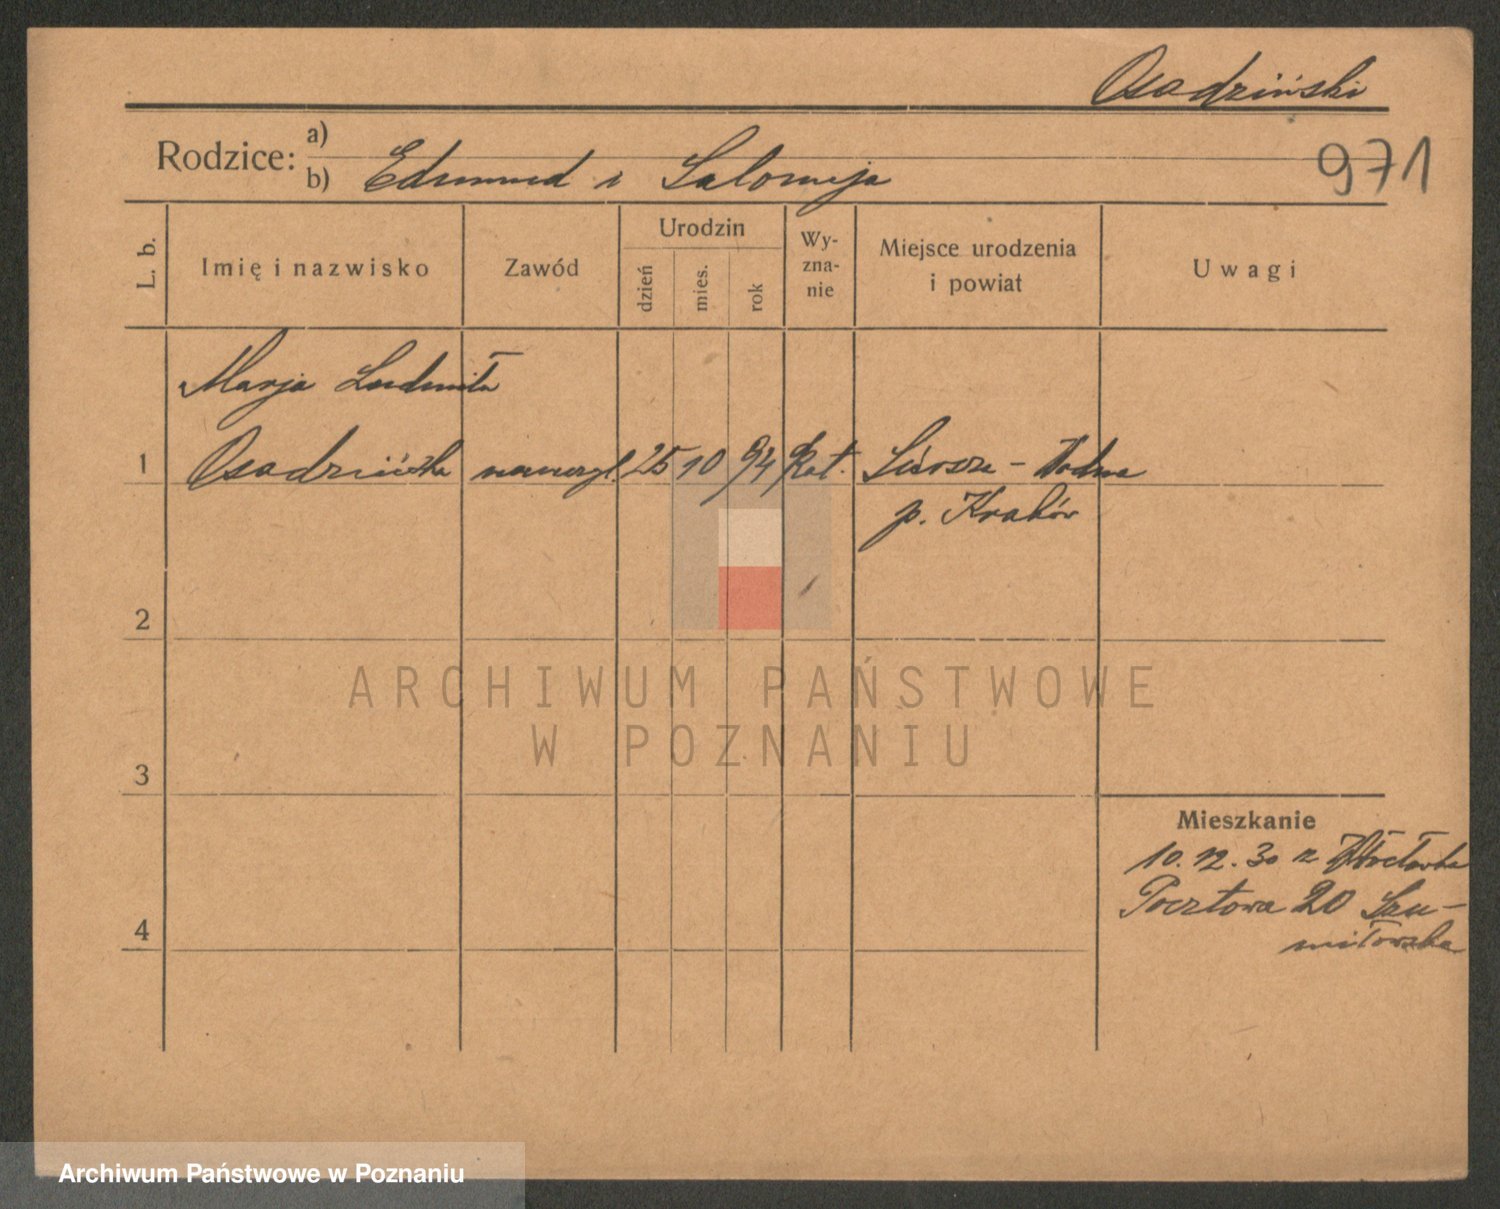 Osadziński
Rodzice: a)
b) Edmund i Salomeja
971
L. b.
Imię i nazwisko
Zawód
Urodzin
dzień
mies.
rok
Wy-
zna-
nie
Miejsce urodzenia
i powiat
Uwagi
Marja Ludmiła
1 Osadzińska nauczyl. 25 10 94 Kat.
p. Kraków
2
ARCHIWUM PAŃSTWOWE
W POZNANIU
3
Mieszkanie
10.12.30 z
Pocztowa 20 Szu-
miłowska
4
Archiwum Państwowe w Poznaniu